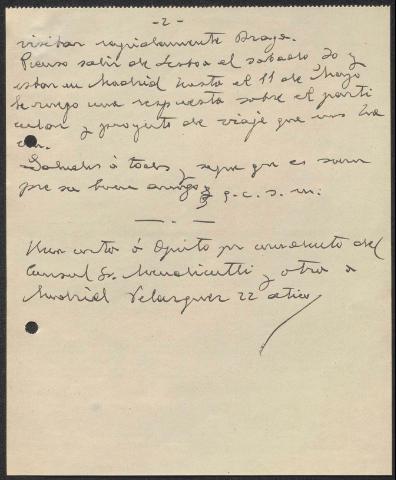 - 2 -
visitar rapidamente Braga.
Pienso salir de Lisboa el sabado 30 y
estar en Madrid hasta el 11 de Mayo
le ruego una respuesta sobre el parti
cular y proyecto de viaje que nos ha
Saludos á todos y sepa que es siem
pre su buen amigo q. e. s. m.
Una carta á Oporto por conducto del
Consul Sr. y otra a
Madrid Velazquez 22 atico